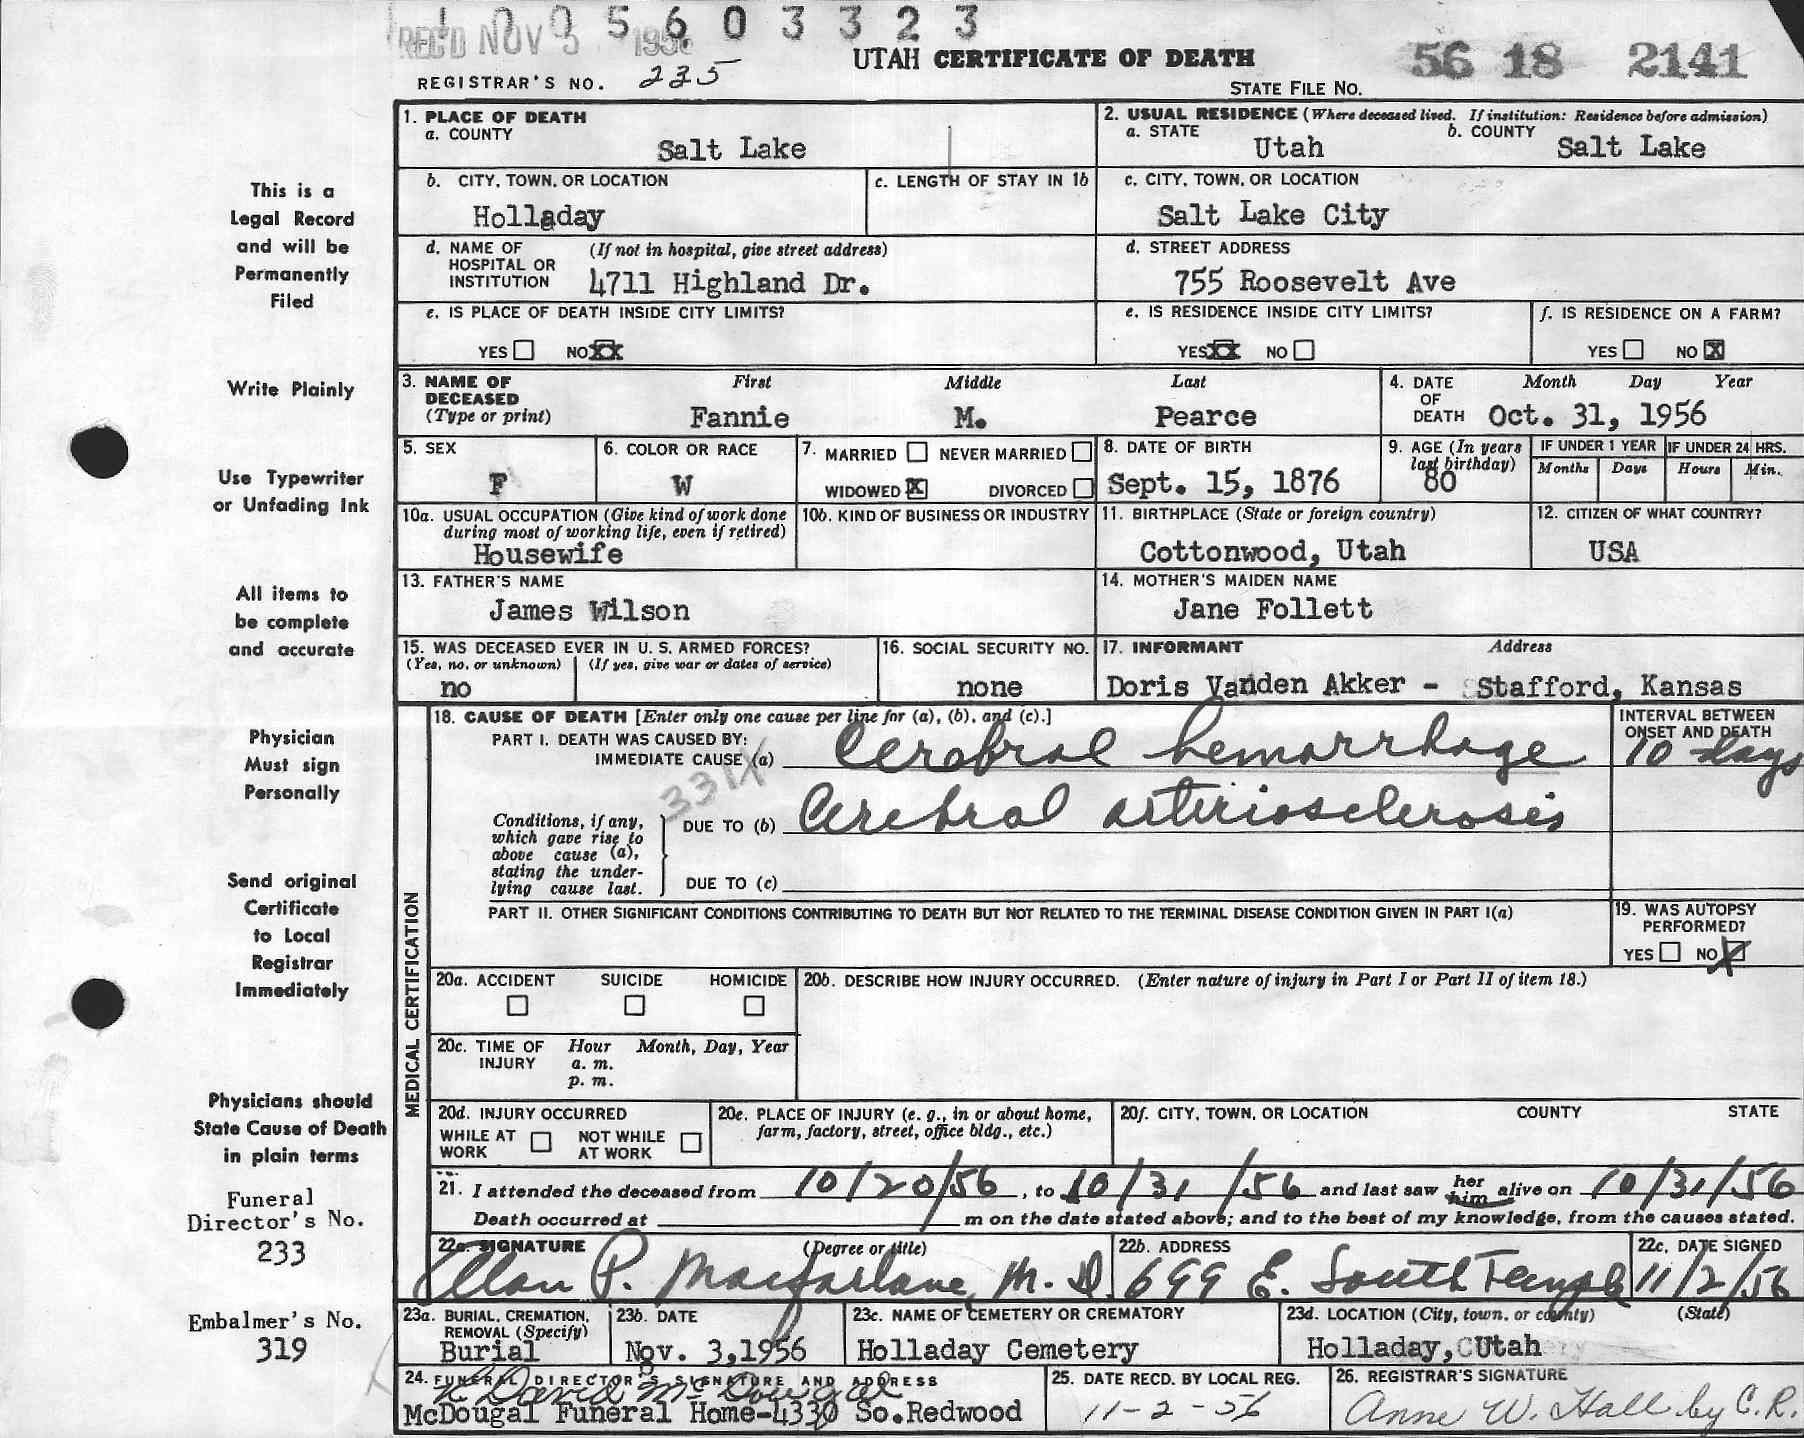 1005603323
REC'D NOV 5 1956
UTAH CERTIFICATE OF DEATH
56 18 2141
REGISTRAR'S NO. 235
STATE FILE NO.
1. PLACE OF DEATH
a. COUNTY
Salt Lake
2. USUAL RESIDENCE (Where deceased lived. If institution: Residence before admission)
a. STATE
Utah
b. COUNTY
Salt Lake
b. CITY, TOWN, OR LOCATION
Holladay
c. LENGTH OF STAY IN 1b
c. CITY, TOWN, OR LOCATION
Salt Lake City
d. NAME OF HOSPITAL OR INSTITUTION
(If not in hospital, give street address)
4711 Highland Dr.
d. STREET ADDRESS
755 Roosevelt Ave
e. IS PLACE OF DEATH INSIDE CITY LIMITS?
YES NO XX
e. IS RESIDENCE INSIDE CITY LIMITS?
YES XX NO
f. IS RESIDENCE ON A FARM?
YES NO X
3. NAME OF DECEASED (Type or print)
First Middle Last
Fannie M. Pearce
4. DATE OF DEATH
Month Day Year
Oct. 31, 1956
5. SEX
F
6. COLOR OR RACE
W
7. MARRIED NEVER MARRIED
WIDOWED X DIVORCED
8. DATE OF BIRTH
Sept. 15, 1876
9. AGE (In years last birthday)
80
IF UNDER 1 YEAR
Months Days
IF UNDER 24 HRS.
Hours Min.
10a. USUAL OCCUPATION (Give kind of work done during most of working life, even if retired)
Housewife
10b. KIND OF BUSINESS OR INDUSTRY
11. BIRTHPLACE (State or foreign country)
Cottonwood, Utah
12. CITIZEN OF WHAT COUNTRY?
USA
13. FATHER'S NAME
James Wilson
14. MOTHER'S MAIDEN NAME
Jane Follett
15. WAS DECEASED EVER IN U. S. ARMED FORCES?
(Yes, no, or unknown) (If yes, give war or dates of service)
no
16. SOCIAL SECURITY NO.
none
17. INFORMANT Address
Doris Vanden Akker - Stafford, Kansas
MEDICAL CERTIFICATION
18. CAUSE OF DEATH [Enter only one cause per line for (a), (b), and (c).]
PART I. DEATH WAS CAUSED BY:
IMMEDIATE CAUSE (a) Cerebral hemorrhage
INTERVAL BETWEEN ONSET AND DEATH
10 days
331X
Conditions, if any, which gave rise to above cause (a), stating the underlying cause last.
DUE TO (b) Cerebral arteriosclerosis
DUE TO (c)
PART II. OTHER SIGNIFICANT CONDITIONS CONTRIBUTING TO DEATH BUT NOT RELATED TO THE TERMINAL DISEASE CONDITION GIVEN IN PART I(a)
19. WAS AUTOPSY PERFORMED?
YES NO X
20a. ACCIDENT SUICIDE HOMICIDE
20b. DESCRIBE HOW INJURY OCCURRED. (Enter nature of injury in Part I or Part II of item 18.)
20c. TIME OF INJURY Hour Month, Day, Year
a. m.
p. m.
20d. INJURY OCCURRED
WHILE AT WORK NOT WHILE AT WORK
20e. PLACE OF INJURY (e. g., in or about home, farm, factory, street, office bldg., etc.)
20f. CITY, TOWN, OR LOCATION COUNTY STATE
21. I attended the deceased from 10/20/56, to 10/31/56 and last saw her him alive on 10/31/56
Death occurred at m on the date stated above; and to the best of my knowledge, from the causes stated.
22a. SIGNATURE (Degree or title)
Allan P. Macfarlane, M.D.
22b. ADDRESS
699 E. South Temple
22c. DATE SIGNED
11/2/56
23a. BURIAL, CREMATION, REMOVAL (Specify)
Burial
23b. DATE
Nov. 3, 1956
23c. NAME OF CEMETERY OR CREMATORY
Holladay Cemetery
23d. LOCATION (City, town, or county) (State)
Holladay, Utah
24. FUNERAL DIRECTOR'S SIGNATURE AND ADDRESS
David McDougal
McDougal Funeral Home-4330 So.Redwood
25. DATE RECD. BY LOCAL REG.
11-2-56
26. REGISTRAR'S SIGNATURE
Anne W. Hall by C.R.
This is a
Legal Record
and will be
Permanently
Filed
Write Plainly
Use Typewriter
or Unfading Ink
All items to
be complete
and accurate
Physician
Must sign
Personally
Send original
Certificate
to Local
Registrar
Immediately
Physicians should
State Cause of Death
in plain terms
Funeral
Director's No.
233
Embalmer's No.
319